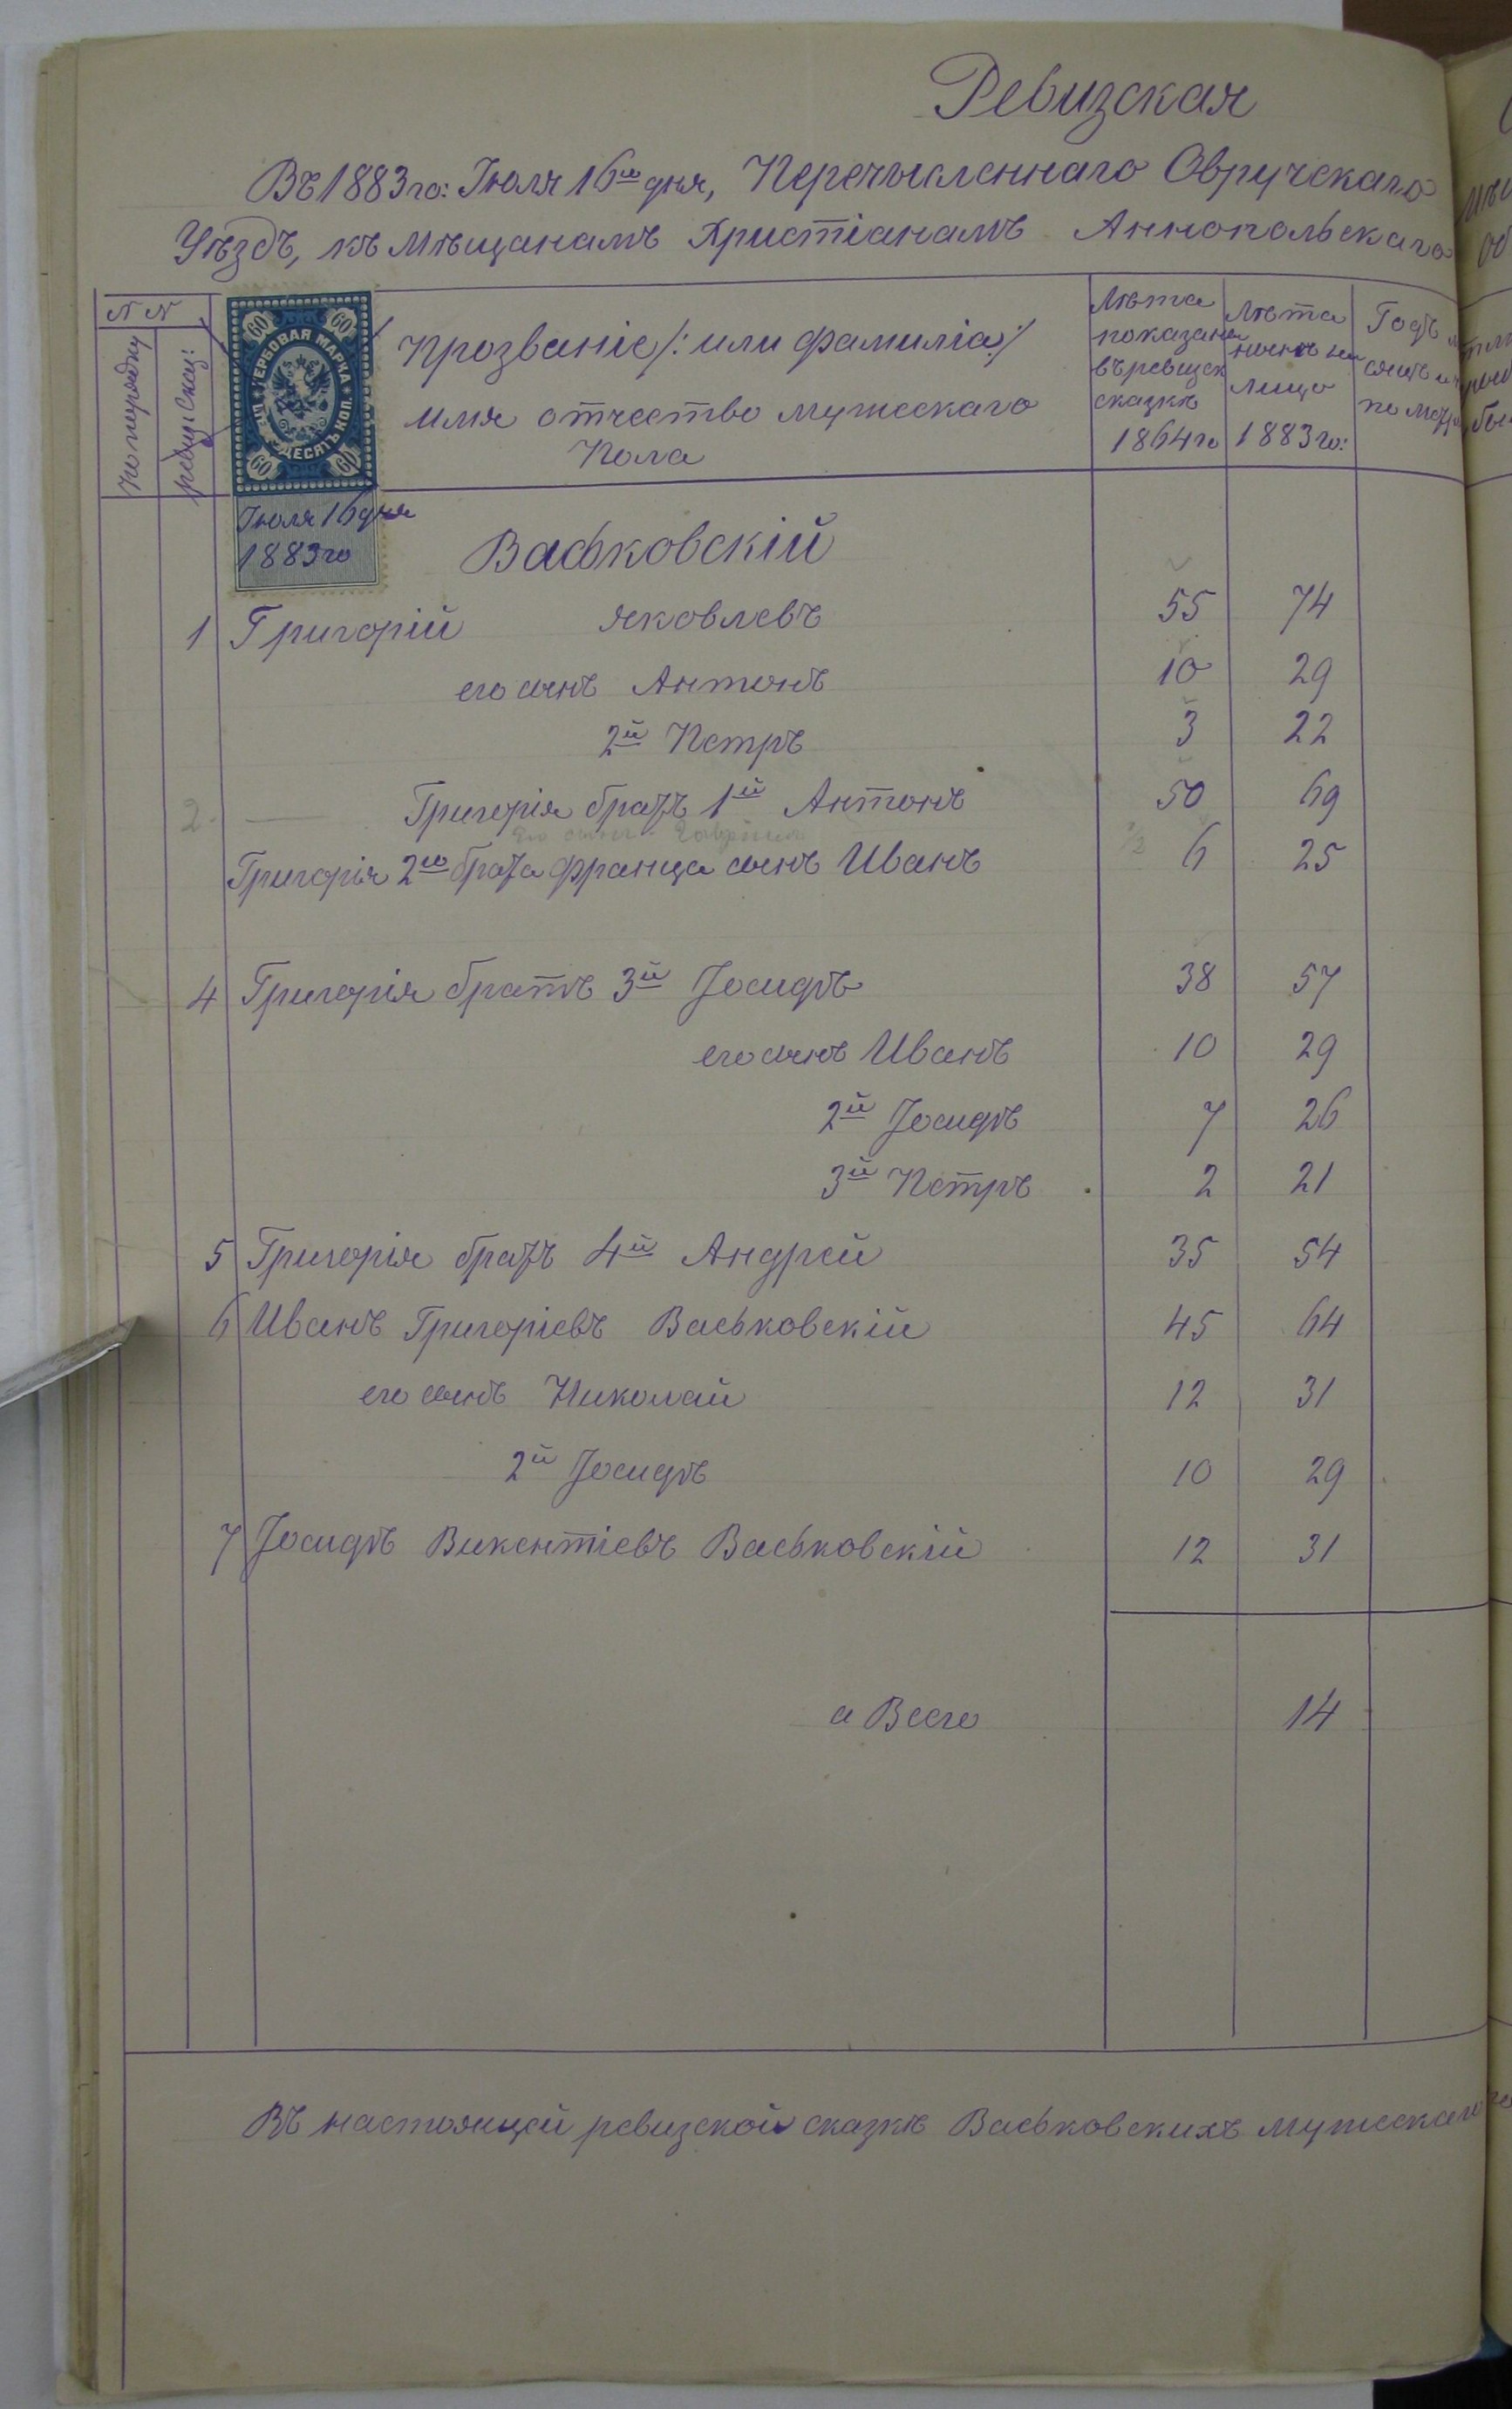 Ревизская
Въ 1883 го: Июля 16го дня, Перечисленнаго Овручскаго
Уѣздъ, къ Мѣщанамъ Христіанамъ Аннопольскаго
N N
По порядку
ревиз: Сказ:
ГЕРБОВАЯ МАРКА
60 60
60 60
Июля 16 дня
1883 го
Прозваніе /: или фамиліа :/
имя отчество мужескаго
Пола
Лѣта
показаны
въ ревизск
сказкѣ
1864 го
Лѣта
лицо
1883 го:
Годъ
Васьковскій
1 Григорій яковлевъ 55 74
его сынъ Антонъ 10 29
2й Петръ 3 22
2. Григорія братъ 1й Антонъ 50 69
его сынъ
Григорія 2го брата Франца сынъ Иванъ 6 25
4 Григорія братъ 3й Іосифъ 38 57
его сынъ Иванъ 10 29
2й Іосифъ 7 26
3й Петръ 2 21
5 Григорія братъ 4й Андрей 35 54
6 Иванъ Григоріевъ Васьковскій 45 64
его сынъ Николай 12 31
2й Іосифъ 10 29
7 Іосифъ Викентіевъ Васьковскій 12 31
а Всего 14
Въ настоящей ревизской сказкѣ Васьковскихъ мужескаго